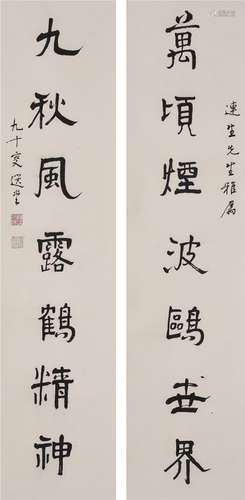 萬頃煙波鷗世界
連生先生雅屬
九秋風露鶴精神
九十叟選堂